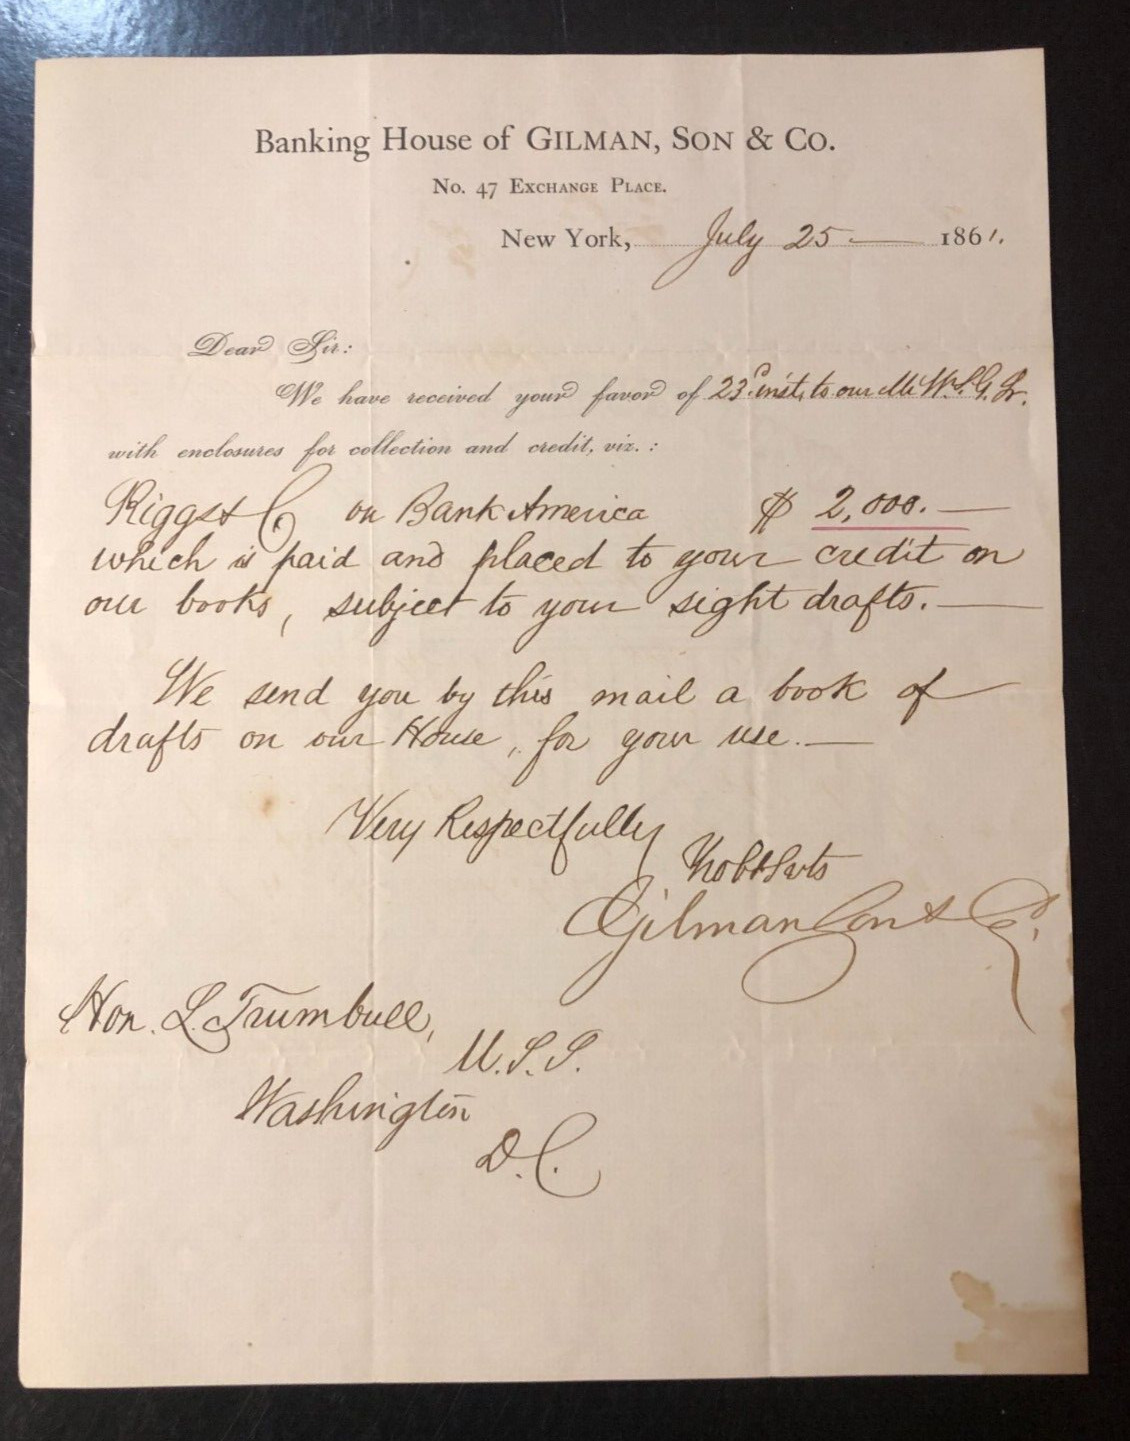 Banking House of GILMAN, SON & CO.
No. 47 EXCHANGE PLACE.
New York, July 25 — 1861.
Dear Sir:
We have received your favor of 23d inst, to our Mr W. S. G. Sr.
with enclosures for collection and credit, viz.:
Riggs & Co on Bank America $ 2,000. —
which is paid and placed to your credit on
our books, subject to your sight drafts. —
We send you by this mail a book of
drafts on our House, for your use. —
Very Respectfully
Gilman Son & Co.
Hon. L. Trumbull,
U. S. S.
Washington
D. C.